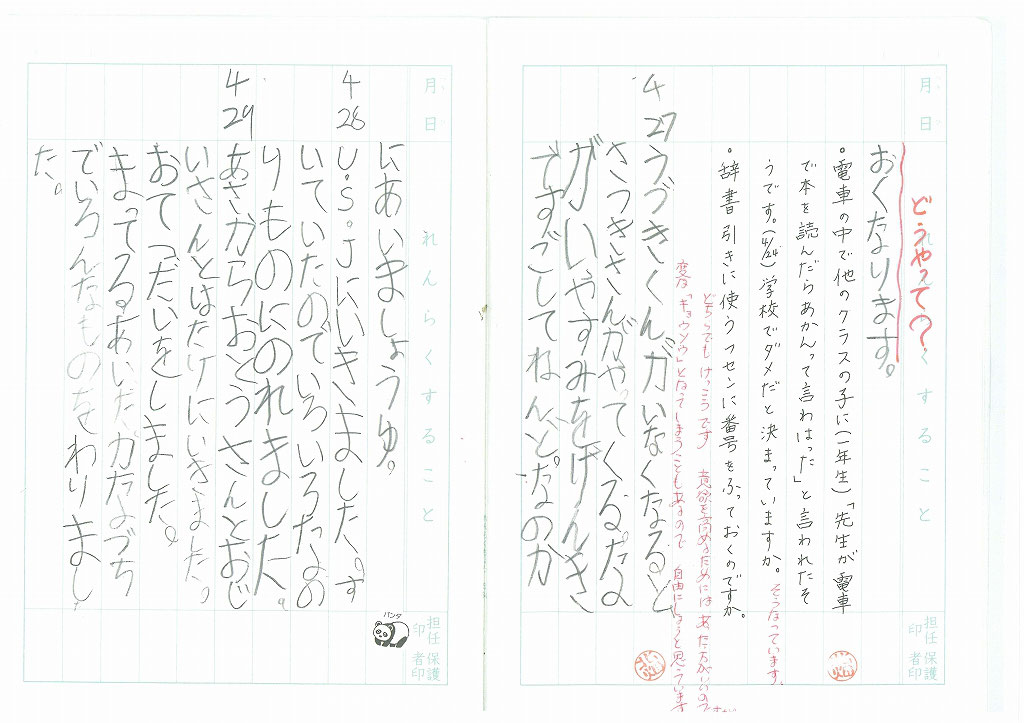 月 日
れんらくすること
どうやっての？
おくなります。
・電車の中で他のクラスの子に(一年生)「先生が電車
で本を読んだらあかんって言わはった」と言われたそ
うです。(4/24)学校でダメだと決まっていますか。
そうなっています。
・辞書引きに使うフセンに番号をふっておくのですか。
どちらでもけっこうです 意欲を高めるためにはあった方がいいので
変な「キョウソウ」となってしまうこともあるので 自由にしようと思っています
4 27
うづきくんがいなくなると
さつきさんがやってくるだな
がいやすみをげんき
ですごしてね。んとなのか
担任印
保護者印
月 日
れんらくすること
にあいましょうゆ。
4 28
U.S.Jにいきました。す
いていたのでいろいろなの
りものにのれました。
4 29
あさからおとうさんとおじ
いさんとはたけにいきました。
おてつだいをしました。
まってるあいだ、かたづち
でいろんなものをわりまし
た。
パンダ
担任印
保護者印